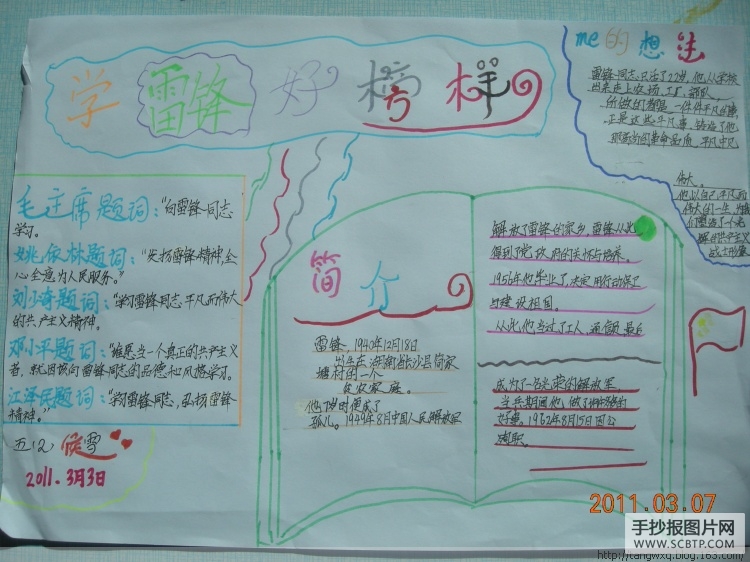 学雷锋好榜样
me的想法
雷锋同志只活了22岁,他从学校
出来走上农场、工厂、部队。
所做的都是一件件平凡的事,
正是这些平凡事,铸造了他
平凡中见
伟大。
他以自己平凡而
伟大的一生
共产主义
战士形象
毛主席题词:“向雷锋同志
学习。
姚依林题词:“发扬雷锋精神全
心全意为人民服务。”
刘少奇题词:“学习雷锋同志平凡而伟大
的共产主义精神。
邓小平题词:“谁愿当一个真正的共产主义
者,就应该向雷锋同志的品德和风格学习。
江泽民题词:“学习雷锋同志,弘扬雷锋
精神。”
五(2)
2011.3月3日
简介
雷锋,1940年12月18日
出生在湖南长沙县简家
塘村的一个
贫农家庭。
他7岁时便成了
孤儿。1949年8月中国人民解放军
解放了雷锋的家乡,雷锋从此
得到了党、政府的关怀与培养。
1956年他毕业了,决定用行动保卫
与建设祖国。
从此,他当过了工人、通信员,最后
成为了一名光荣的解放军。
当兵期间他,做了
好事。1962年8月15日因公
殉职。
2011.03.07
手抄报图片网
WWW.SCBTP.COM
http://tangwxq.blog.163.com/